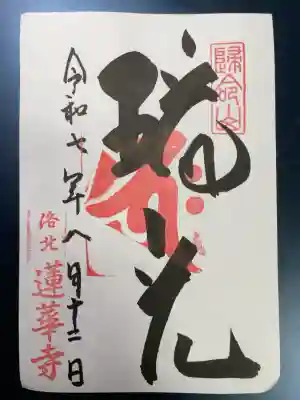 歸命山
瑞光
令和七年八月十二日
洛北
蓮華寺